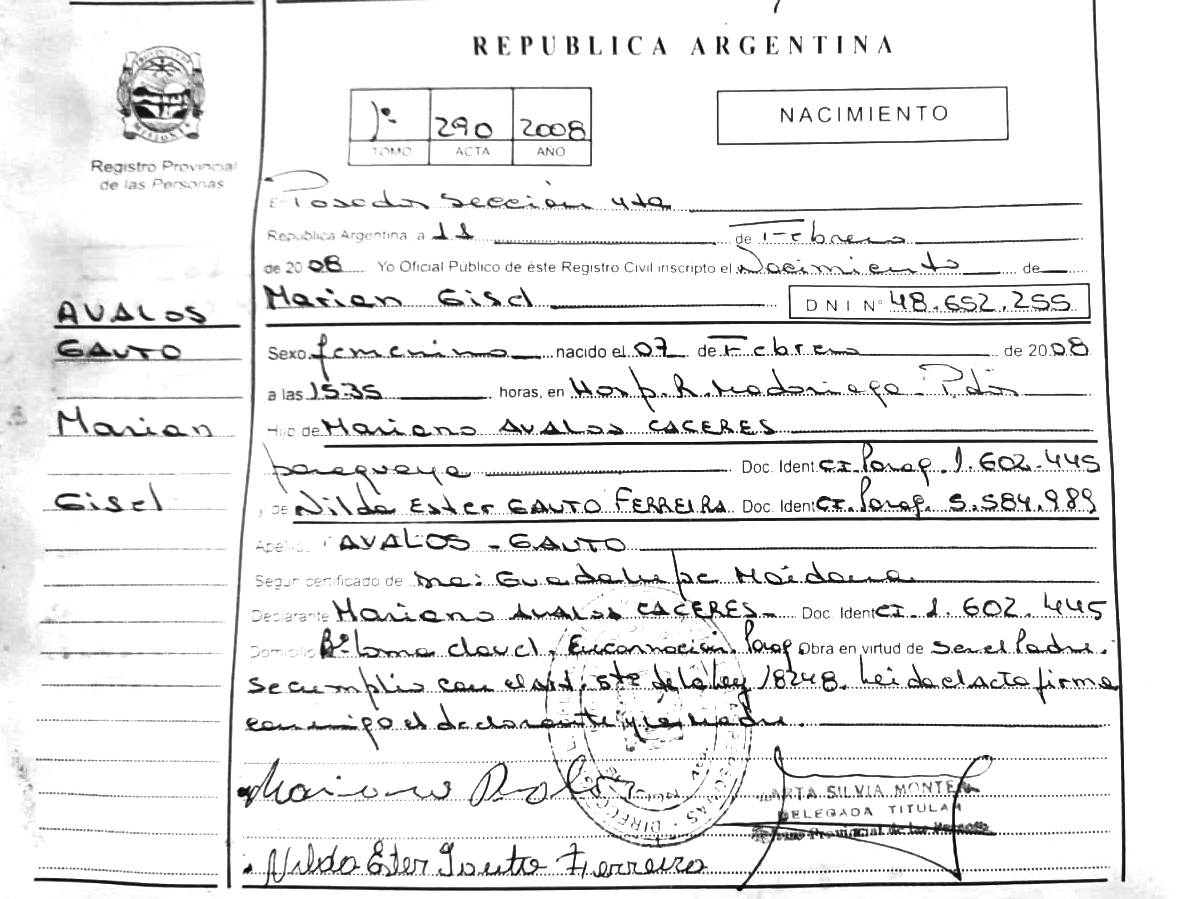 REPUBLICA ARGENTINA
1º 290 2008
TOMO ACTA AÑO
NACIMIENTO
PROVINCIA DE MISIONES
Registro Provincial
de las Personas
En Posadas Sección 4ta
República Argentina a 11 de Febrero
de 2008 Yo Oficial Público de éste Registro Civil inscripto el Nacimiento de
Marian Gisel DNI Nº 48.652.255
AVALOS
GAUTO
Marian
Gisel
Sexo femenino nacido el 07 de Febrero de 2008
a las 15.35 horas, en Hosp. R. Madariaga. Pdas
Hijo de Mariano AVALOS CACERES
paraguaya Doc. Ident CI. Parag. 1.602.445
y de Nilda Ester GAUTO FERREIRA Doc. Ident CI. Parag. 5.584.989
AVALOS - GAUTO
Según certificado de Guadalupe Maidana
Declarante Mariano AVALOS CACERES Doc. Ident CI. 1.602.445
Domicilio Bº Loma clavel. Encarnación. Parag Obra en virtud de ser el Padre.
Se cumplio con el art. 5to de la ley 18248. Leida el acta firma
conmigo el declarante y la madre.
Mariano
MARTA SILVIA
DELEGADA TITULAR
Registro Provincial de las Personas
Nilda Ester Gauto Ferreira